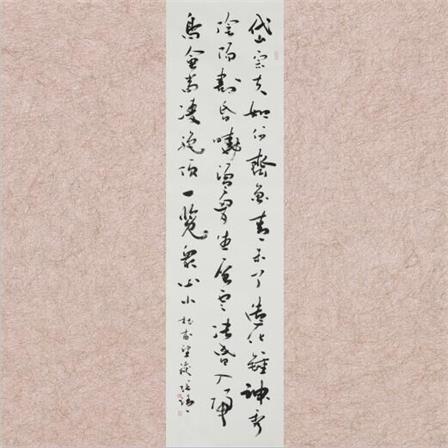 岱宗夫如何齊魯青未了造化鍾神秀
陰陽割昏曉盪胸生層雲決眥入歸
鳥會當凌絕頂一覽眾山小 杜甫望嶽